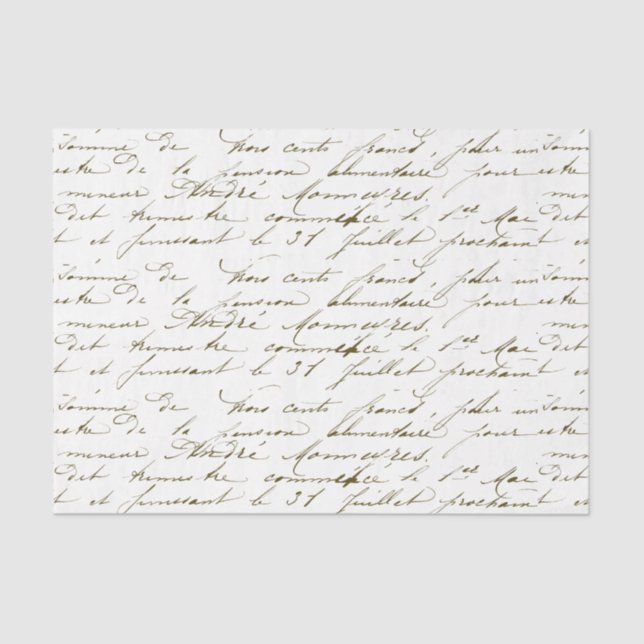 Somme de trois cents francs, pour un Somme
estre de la pension alimentaire pour estre
mineur André mineu
Dit trimestre commencé le 1er Mai Dit
t et finissant le 31 Juillet prochain t et
Somme de trois cents francs, pour un Somme
estre de la pension alimentaire pour estre
mineur André mineu
Dit trimestre commencé le 1er Mai Dit
t et finissant le 31 Juillet prochain t et
Somme de trois cents francs, pour un Somme
estre de la pension alimentaire pour estre
mineur André mineu
Dit trimestre commencé le 1er Mai Dit
t et finissant le 31 Juillet prochain t et